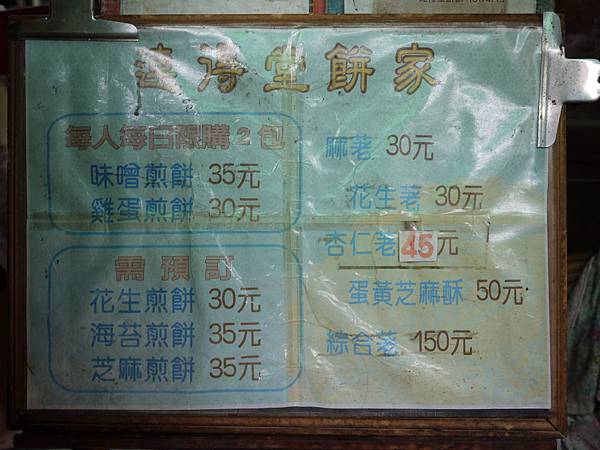 連得堂餅家
每人每日限購2包
味噌煎餅 35元
雞蛋煎餅 30元
需預訂
花生煎餅 30元
海苔煎餅 35元
芝麻煎餅 35元
麻荖 30元
花生荖 30元
杏仁荖 45元
蛋黃芝麻酥 50元
綜合荖 150元